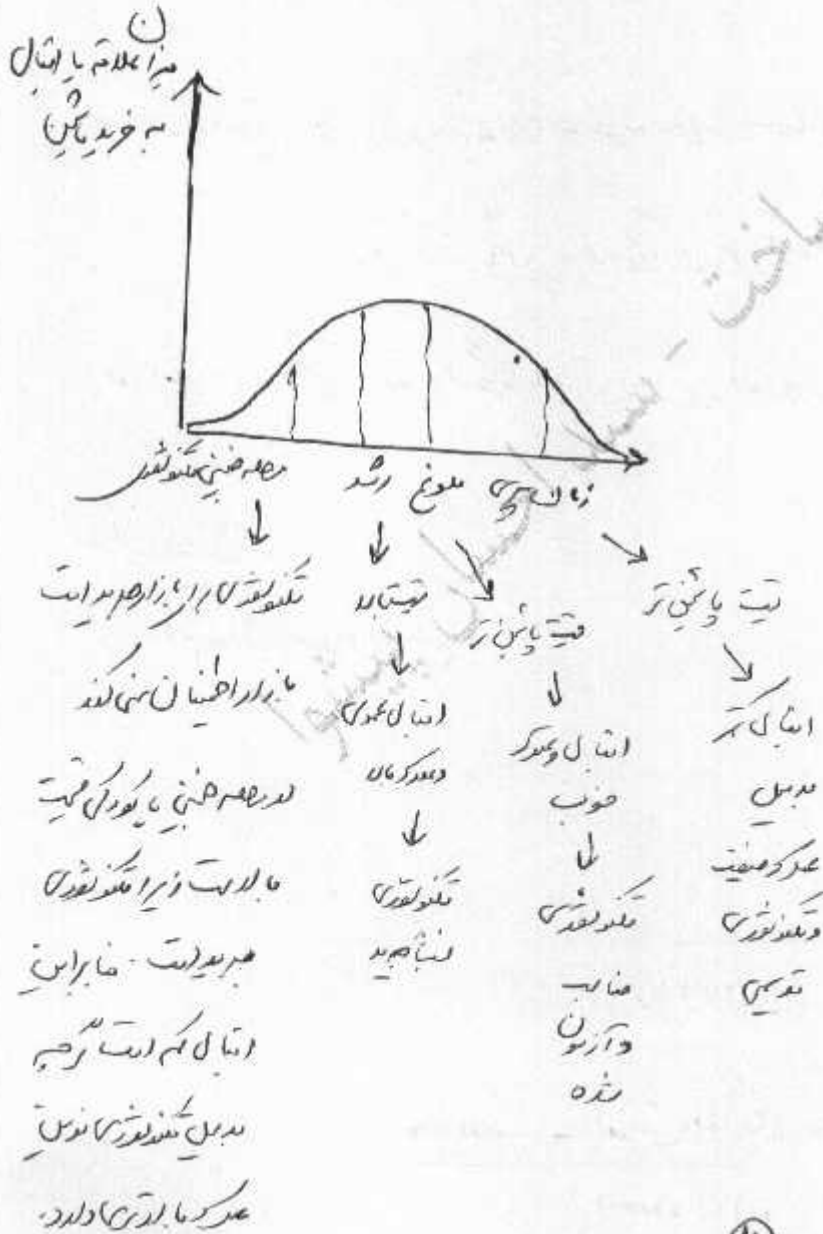 میزان علاقه یا اقبال
به خرید ماشین
مرحله جنینی تکنولوژی
رشد
بلوغ
زمان پیری
تکنولوژی برای بازار جدید است
بازار اطمینان نمی‌کند
در مرحله جنینی یا کودکی قیمت
بالاست زیرا تکنولوژی
جدید است. بنابراین
اقبال کم است گرچه
بدلیل تکنولوژی نوین
عملکرد بالاتری دارد.
قیمت بالا
اقبال عمومی
وعملکرد بالا
تکنولوژی
نسبتا جدید
قیمت پائین‌تر
اقبال وعملکرد
خوب
تکنولوژی
مناسب
وآزمون
شده
قیمت پائین‌تر
اقبال کمتر
بدلیل
عملکرد ضعیف
وتکنولوژی
قدیمی
ساخت -